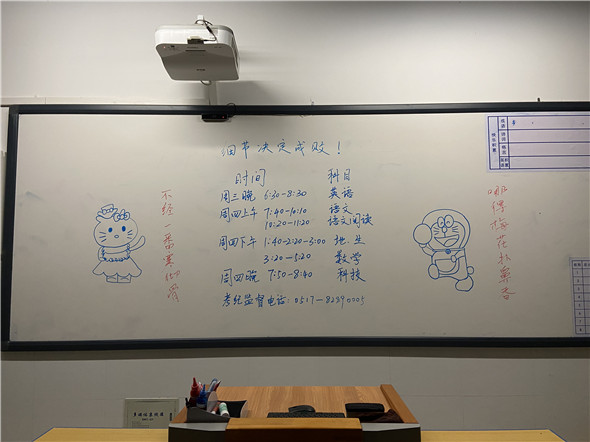 细节决定成败！
时间 科目
周三晚 6:30-8:30 英语
周四上午 7:40-10:10 语文
10:20-11:20 语文阅读
周四下午 1:40-2:20-3:00 地、生
3:20-5:20 数学
周四晚 7:50-8:40 科技
考纪监督电话：0517-82990005
不经一番寒彻骨
哪得梅花扑鼻香